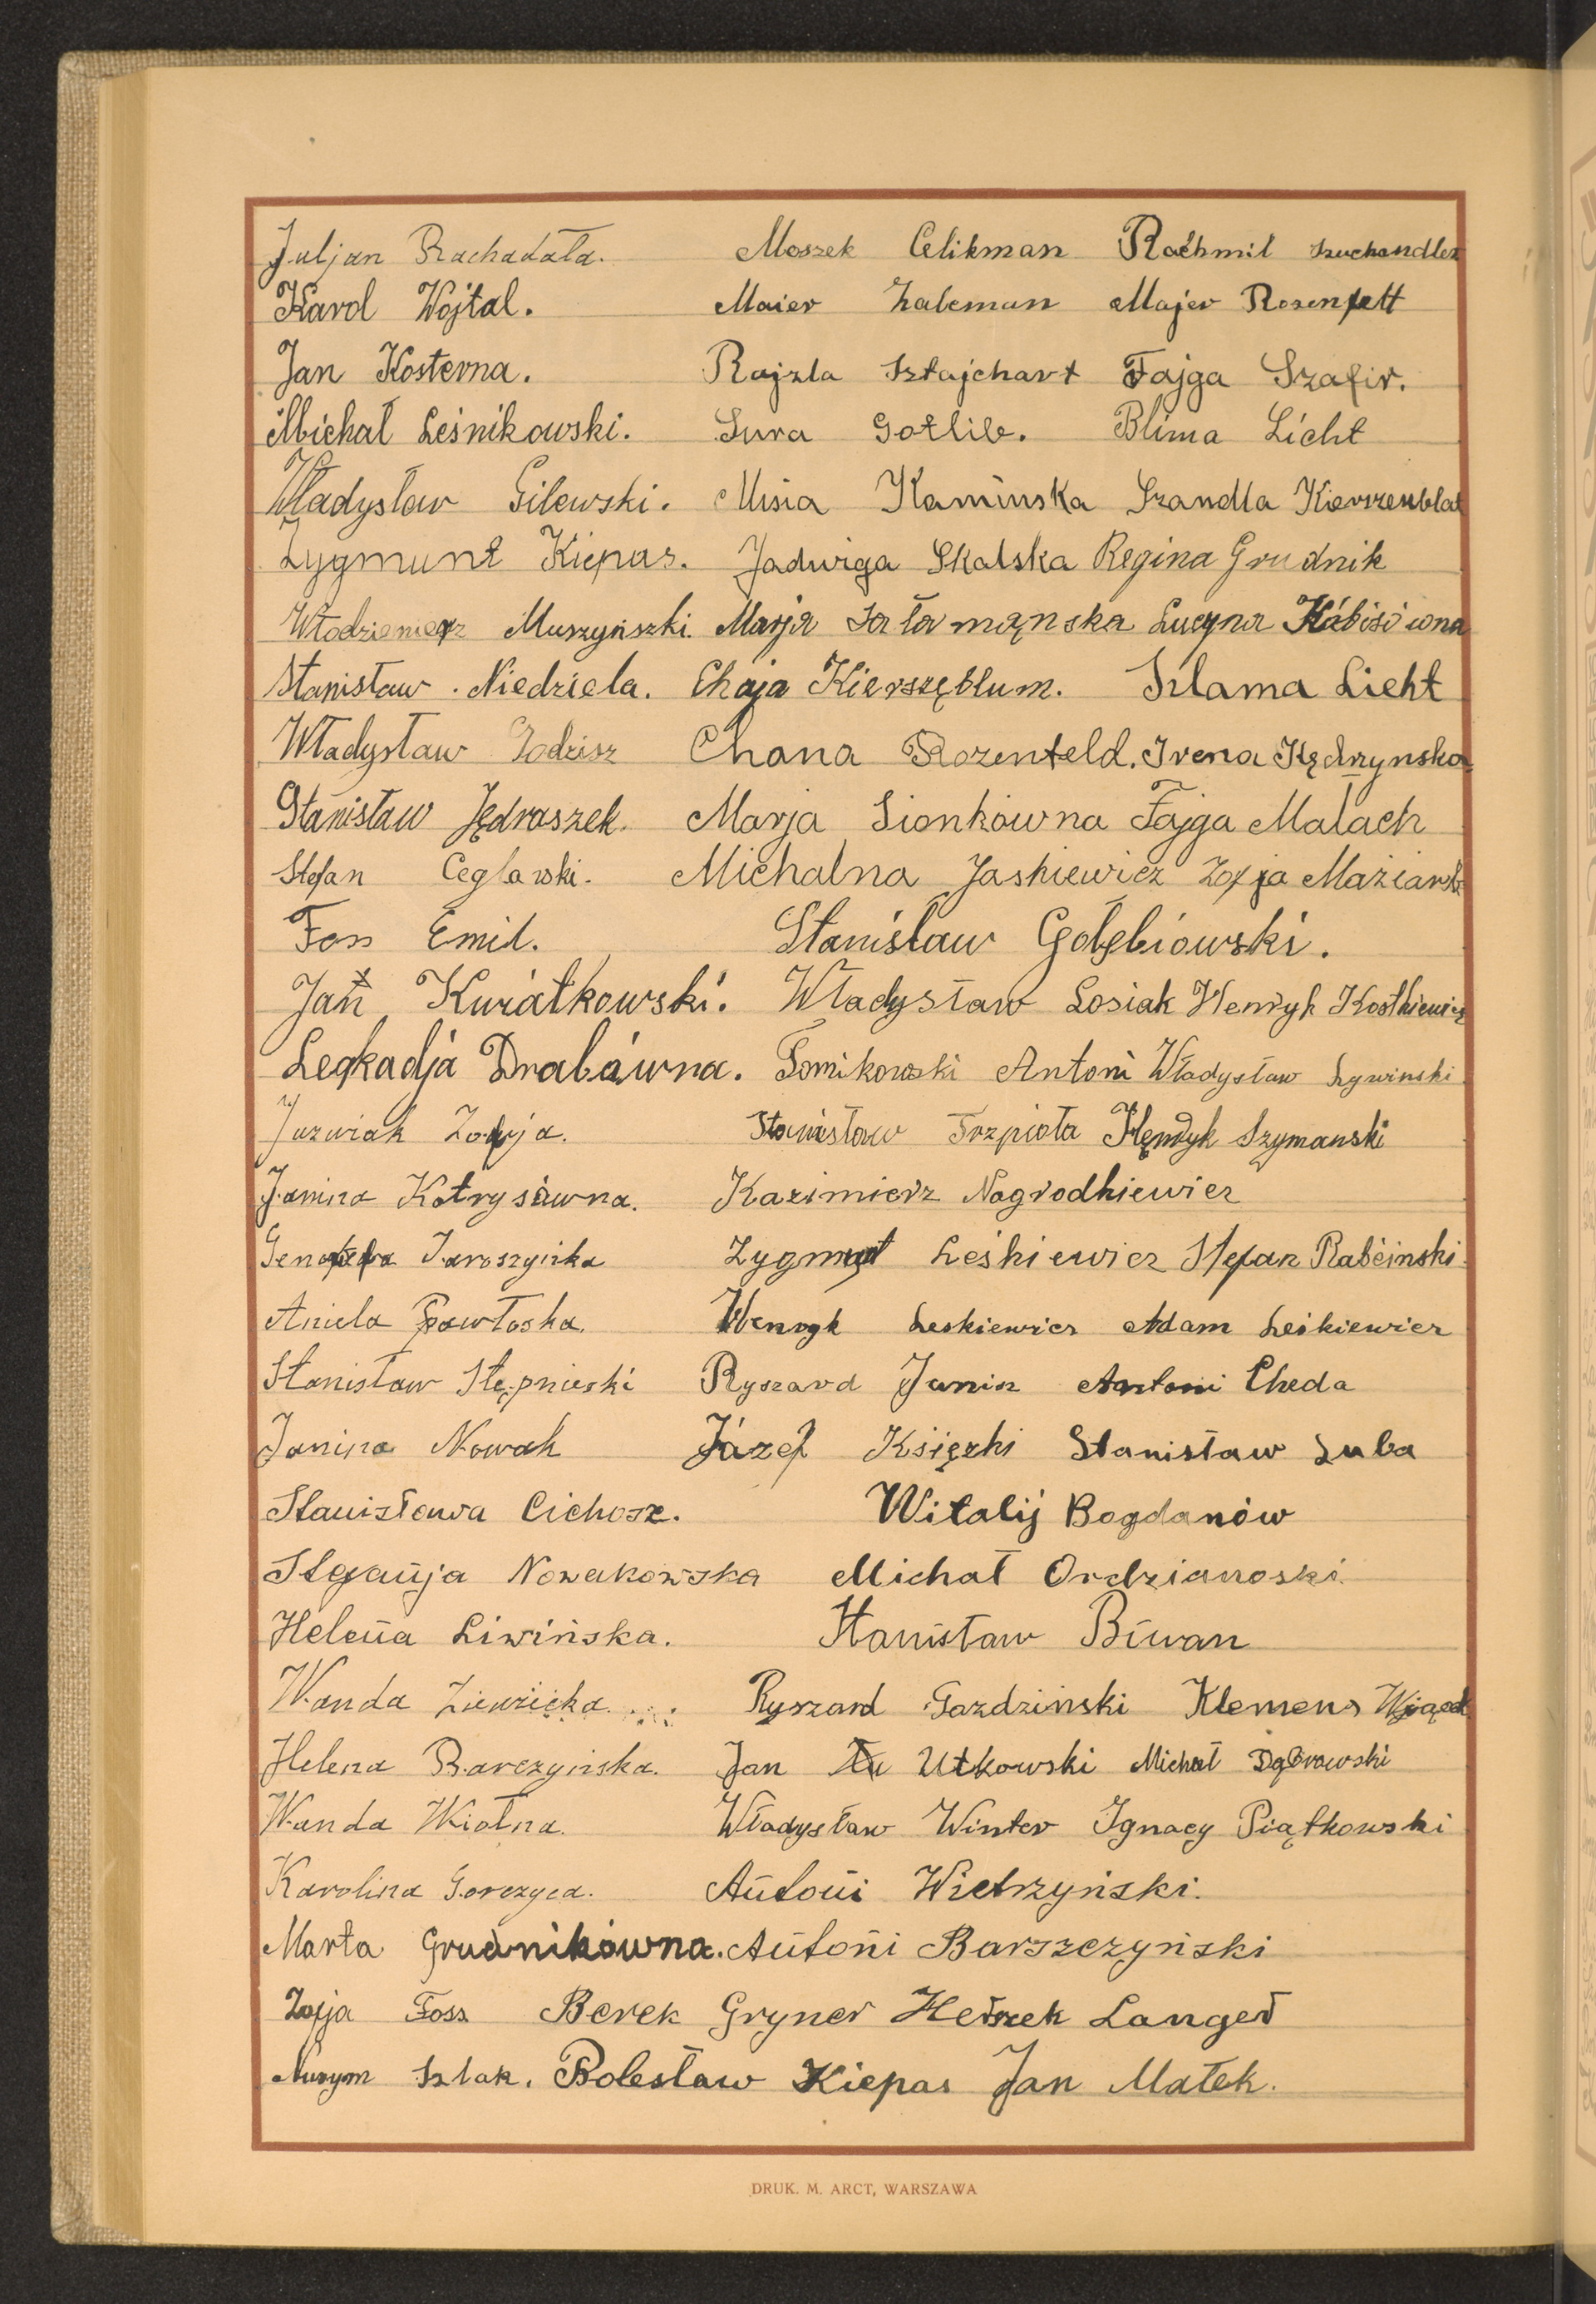 Juljan Rachadała. Moszek Celikman Rachmil Szuchandler
Karol Wojtal. Maier Zalcman Majer Rosenfelt
Jan Kosterna. Rajzla Sztajchart Fajga Szafir.
Michał Leśnikowski. Sura Gotlib. Blima Licht
Władysław Gilewski. Misia Kamińska Szandla Kierszenblat
Zygmunt Kiepas. Jadwiga Skalska Regina Grudnik
Włodzimierz Muszyński. Marja Sałamąnska Lucyna Kábisiówna
Stanisław Niedziela. Chaja Kierszęblum. Szlama Licht
Władysław Godzisz Chana Rozenfeld. Irena Kędrzynska
Stanisław Jędraszek. Marja Sionkówna Fajga Małach
Stefan Ceglawski. Michalna Jaskiewicz Zofja Maziarsk
Foss Emil. Stanisław Gołębiowski.
Jan Kwiatkowski. Władysław Losiak Henryk Kostkiewicz
Legkadja Drabówna. Tomikowski Antoni Władysław Lywinski
Juzwiak Zofja. Stanisław Trzpioła Hęnryk Szymanski
Janina Kotrysówna. Kazimierz Nagrodkiewicz
Genowefa Jaroszyńska Zygmunt Leśkiewicz Stefan Rabcinski
Aniela Pawłoska. Wenryk Leskiewicz Adam Leśkiewicz
Stanisław Stępnieski Ryszard Junin Antoni Cheda
Janina Nowak Józef Księzki Stanisław Luba
Stanisława Cichosz. Witalij Bogdanów
Stefanja Nowakowska Michał Ordzianoski
Helena Liwińska. Stanisław Biwan
Wanda Ziewiecka. Ryszard Gazdziński Klemens Wjącek
Helena Barczyńska. Jan Utkowski Michał Dąbrowski
Wanda Wiotna. Władysław Winter Ignacy Piątkowski
Karolina Gorczyca. Antoni Wietrzyński.
Marta Grudnikówna. Antoni Barszczyński
Zofja Foss Berek Gryner Herszek Langer
Nusym Szlak. Bolesław Kiepas Jan Małek.
DRUK. M. ARCT, WARSZAWA